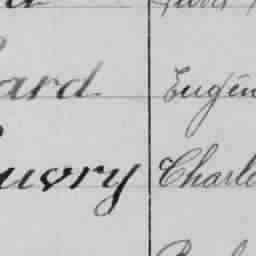 ard Eugén
uvry Charlo